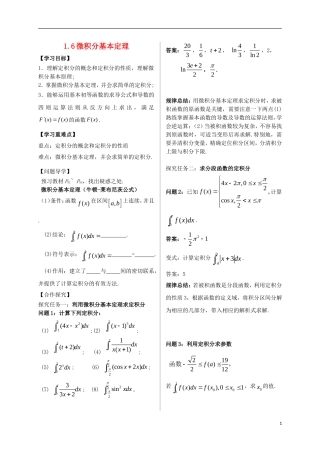 1.6 微积分基本定理
【学习目标】
1．理解定积分的概念和定积分的性质，理解微积分基本原理；
2．掌握微积分基本定理，并会求简单的定积分；
3．能够运用基本初等函数的求导公式和导数的四则运算法则从反方向上求出，满足
F'(x)=f(x)的函数F(x).
【学习重难点】
重点：定积分的概念和定积分的性质
难点：微积分基本定理，并会求简单的定积分.
【问题导学】
预习教材，找出疑惑之处.
微积分基本定理（牛顿-莱布尼茨公式）
(1)条件：函数 f(x) 在区间[a,b]上连续，并且
.
(2)结论：∫f(x)dx=________.
(3)符号表示：∫f(x)dx=______=______.
(4)作用：建立了_____与_____间的密切联系，并提供了计算定积分的有效方法.
【合作探究】
探究任务一：利用微积分基本定理求定积分
问题 1：计算下列定积分：
(1) ∫(4x-x²)dx； (2) ∫(x-1)⁵dx；
(3) ∫(t+2)dx； (4) ∫1/(x(x+1))dx
(5) ∫2ˣdx； (6) ∫(cos x+2x)dx；
(7) ∫3/(3x+2)dx； (8) ∫sin²xdx．
答案：20/3，1/6，t+2，ln 4/3，1/ln 2，2，
ln (3e+2)/2，π/2．
规律总结：用微积分基本定理求定积分时，求被积函数的原函数是关键，需要注意一下两点：(1)熟练掌握基本函数的导数及导数的运算法则，学会逆运算；(2)当被积函数较为复杂，不容易找原函数时，可适当变形后再求解，同时，要弄清积分变量，精确定位积分区间，分清积分上限与积分下限.
探究任务二：求分段函数的定积分
问题 2：已知
f(x)={4x-2π,0≤x≤π/2
cos x, π/2<x≤π
，计算
∫f(x)dx．
答案：-½π²-1
变式：计算定积分∫|x+3|dx．
答案：5
规律总结：若被积函数是分段函数，利用定积分的性质 3，根据函数的定义域，将积分区间分解为相应的几部分，带入相应的解析式求解.
问题 3：利用定积分求参数
若∫f(x)dx=f(x₀),0≤x₀≤1，求的值.
1